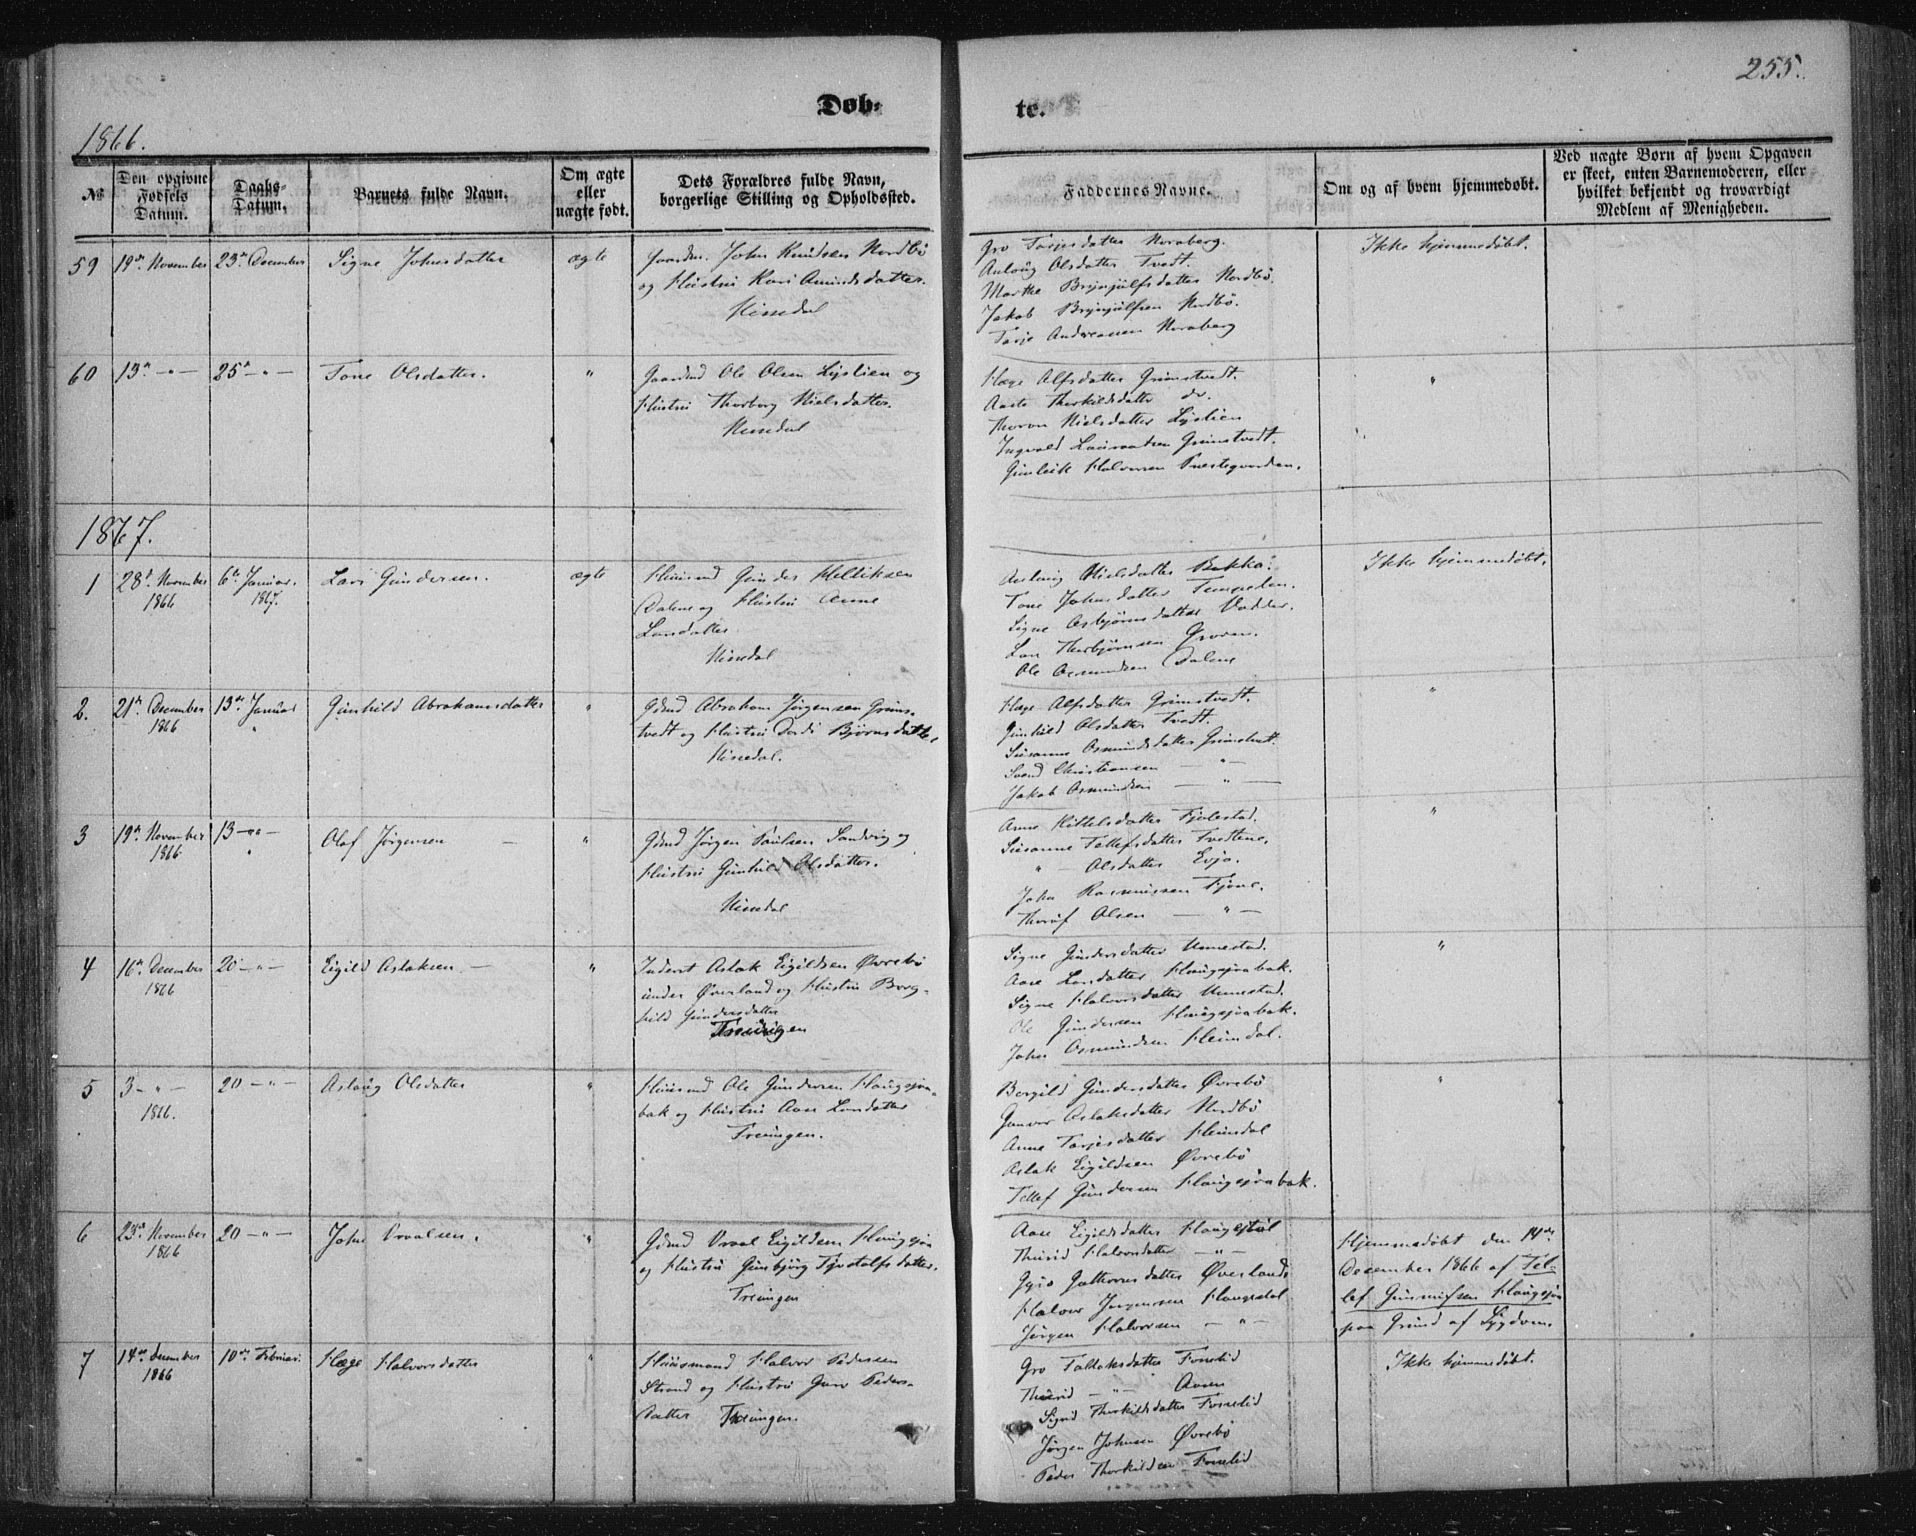 255.
Døb-
te.
1866.
№
Den opgivne Fødsels Datum.
Daabs-Datum.
Barnets fulde Navn.
Om ægte eller uægte født.
Dets Forældres fulde Navn, borgerlige Stilling og Opholdssted.
Faddernes Navne.
Om og af hvem hjemmedøbt.
Ved uægte Børn af hvem Opgaven er skeet, enten Barnemoderen, eller hvilket bekjendt og troværdigt Medlem af Menigheden.
59 19de November 23de December Signe Johnsdatter ægte Gaardm. John Knudsen Nordbø
og Hustru Kari Amundsdatter.
Nissedal
Gro Tarjesdatter Noraberg.
Aslaug Olsdatter Tvedt.
Marthe Brynjulfsdatter Nordbø.
Jakob Brynjulfsen Nordbø.
Tarje Andreassen Noraberg
Ikke hjemmedøbt.
60 13de -"- 25de -"- Tone Olsdatter. " Gaardmd Ole Olsen Lyslien og
Hustru Thorborg Nielsdatter.
Nissedal
Hæge Alfsdatter Grimstvedt.
Aaste Thorkildsdatter do.
Thoron Nielsdatter Lyslien
Ingvald Laurantsen Grimstvedt.
Gunleik Halvorsen Prestegaarden.
"
1867.
1 28de November 1866 6te Januar 1867. Lars Gundersen. ægte Huusmd Gunder Kleliksen
Dalene og Hustru Anne
Larsdatter
Nissedal
Aslaug Nielsdatter Bekka.
Tone Johnsdatter Tempelen.
Signe Asbjørnsdatter Vadder.
Lars Thorbjørnsen Groven.
Ole Osmundsen Dalene
Ikke hjemmedøbt.
2. 21de December 1866 13de Januar " Gunhild Abrahamsdatter " Gdmd Abraham Jørgensen Grims-
tvedt og Hustru Dordi Bjørnsdatter,
Nissedal.
Hæge Alfsdatter Grimstvedt.
Gunhild Olsdatter Tvedt.
Susanne Osmundsdatter Grimstvedt.
Svend Christiansen -"-
Jakob Osmundsen -"-
"
3 19de November 1866 13 -"- Olaf Jørgensen " Gdmd Jørgen Paulsen Sandvig og
Hustru Gunhild Olsdatter.
Nissedal
Anne Kittelsdatter Fjolestad.
Susanne Tellefsdatter Tvedtene.
" - Olsdatter Evjo.
John Rasmussen Fjone.
Thoruf Olsen -"-
"
4 16de December 1866 20 -"- Eigild Aslaksen " Inderst Aslak Eigildsen Øvrebø
under Øverland og Hustru Borg-
hild Gundersdatter
Treungen
Signe Gundersdatter Unnestad.
Aase Larsdatter Haugsjaabak.
Signe Halvorsdatter Unnestad.
Ole Gundersen Haugsjaabak.
John Osmundsen Heimdal.
"
5 3 -"- 1866. 20 -"- Aslaug Olsdatter " Huusmd Ole Gundersen Haugsjaa-
bak og Hustru Aase Larsdatter
Treungen.
Borgild Gundersdatter Øvrebø
Gunvor Aslaksdatter Nordbø
Anne Tarjesdatter Heimdal
Aslak Eigildsen Øvrebø
Tellef Gundersen Haugsjaabak.
"
6 23de November 1866 20 -"- John Vraalsen. " Gdmd Vraal Eigildsen Haugsjaa
og Hustru Gunbjørg Tjostolfsdatter.
Treungen
Aase Eigildsdatter Haugestøl
Thurid Halvorsdatter -"-
Gyro Guthormsdatter Øverlands
Halvor Jørgensen Haugedal
Jørgen Halvorsen -"-
Hjemmedøbt den 14de
December 1866 af Tel-
lef Gunnufsen Haugsjaa
paa Grund af Sygdom.
7 14de December 1866 10de Februar. Hæge Halvorsdatter " Huusmand Halvor Pedersen
Strand og Hustru Guro Peders-
datter Treungen.
Gro Tallaksdatter Fosselid
Thurid -"- Aasen
Signe Thorkildsdatter Fosselid
Jørgen Johnsen Øvrebø
Peder Thorkildsen Fosselid
Ikke hjemmedøbt.